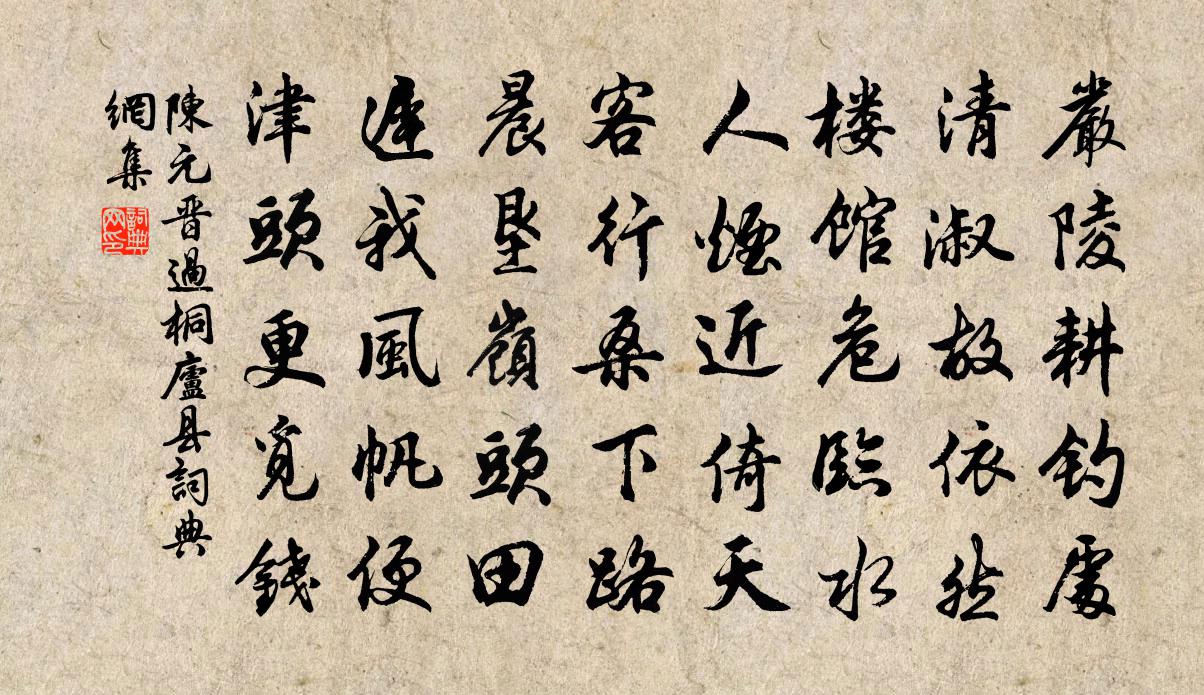 嚴陵耕钓處
清淑故依然
楼馆危臨水
人煙近倚天
客行桑下路
晨垦嶺頭田
遅我風帆便
津頭更覓錢
陳元晋過桐廬县詞典
網集
詞典
网印